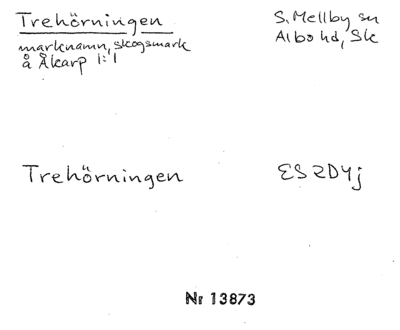 Trehörningen
S. Mellby sn
marknamn, skogsmark
Albo hd, Sk
å Åkarp 1:1
Trehörningen
ES2D4j
Nr 13873